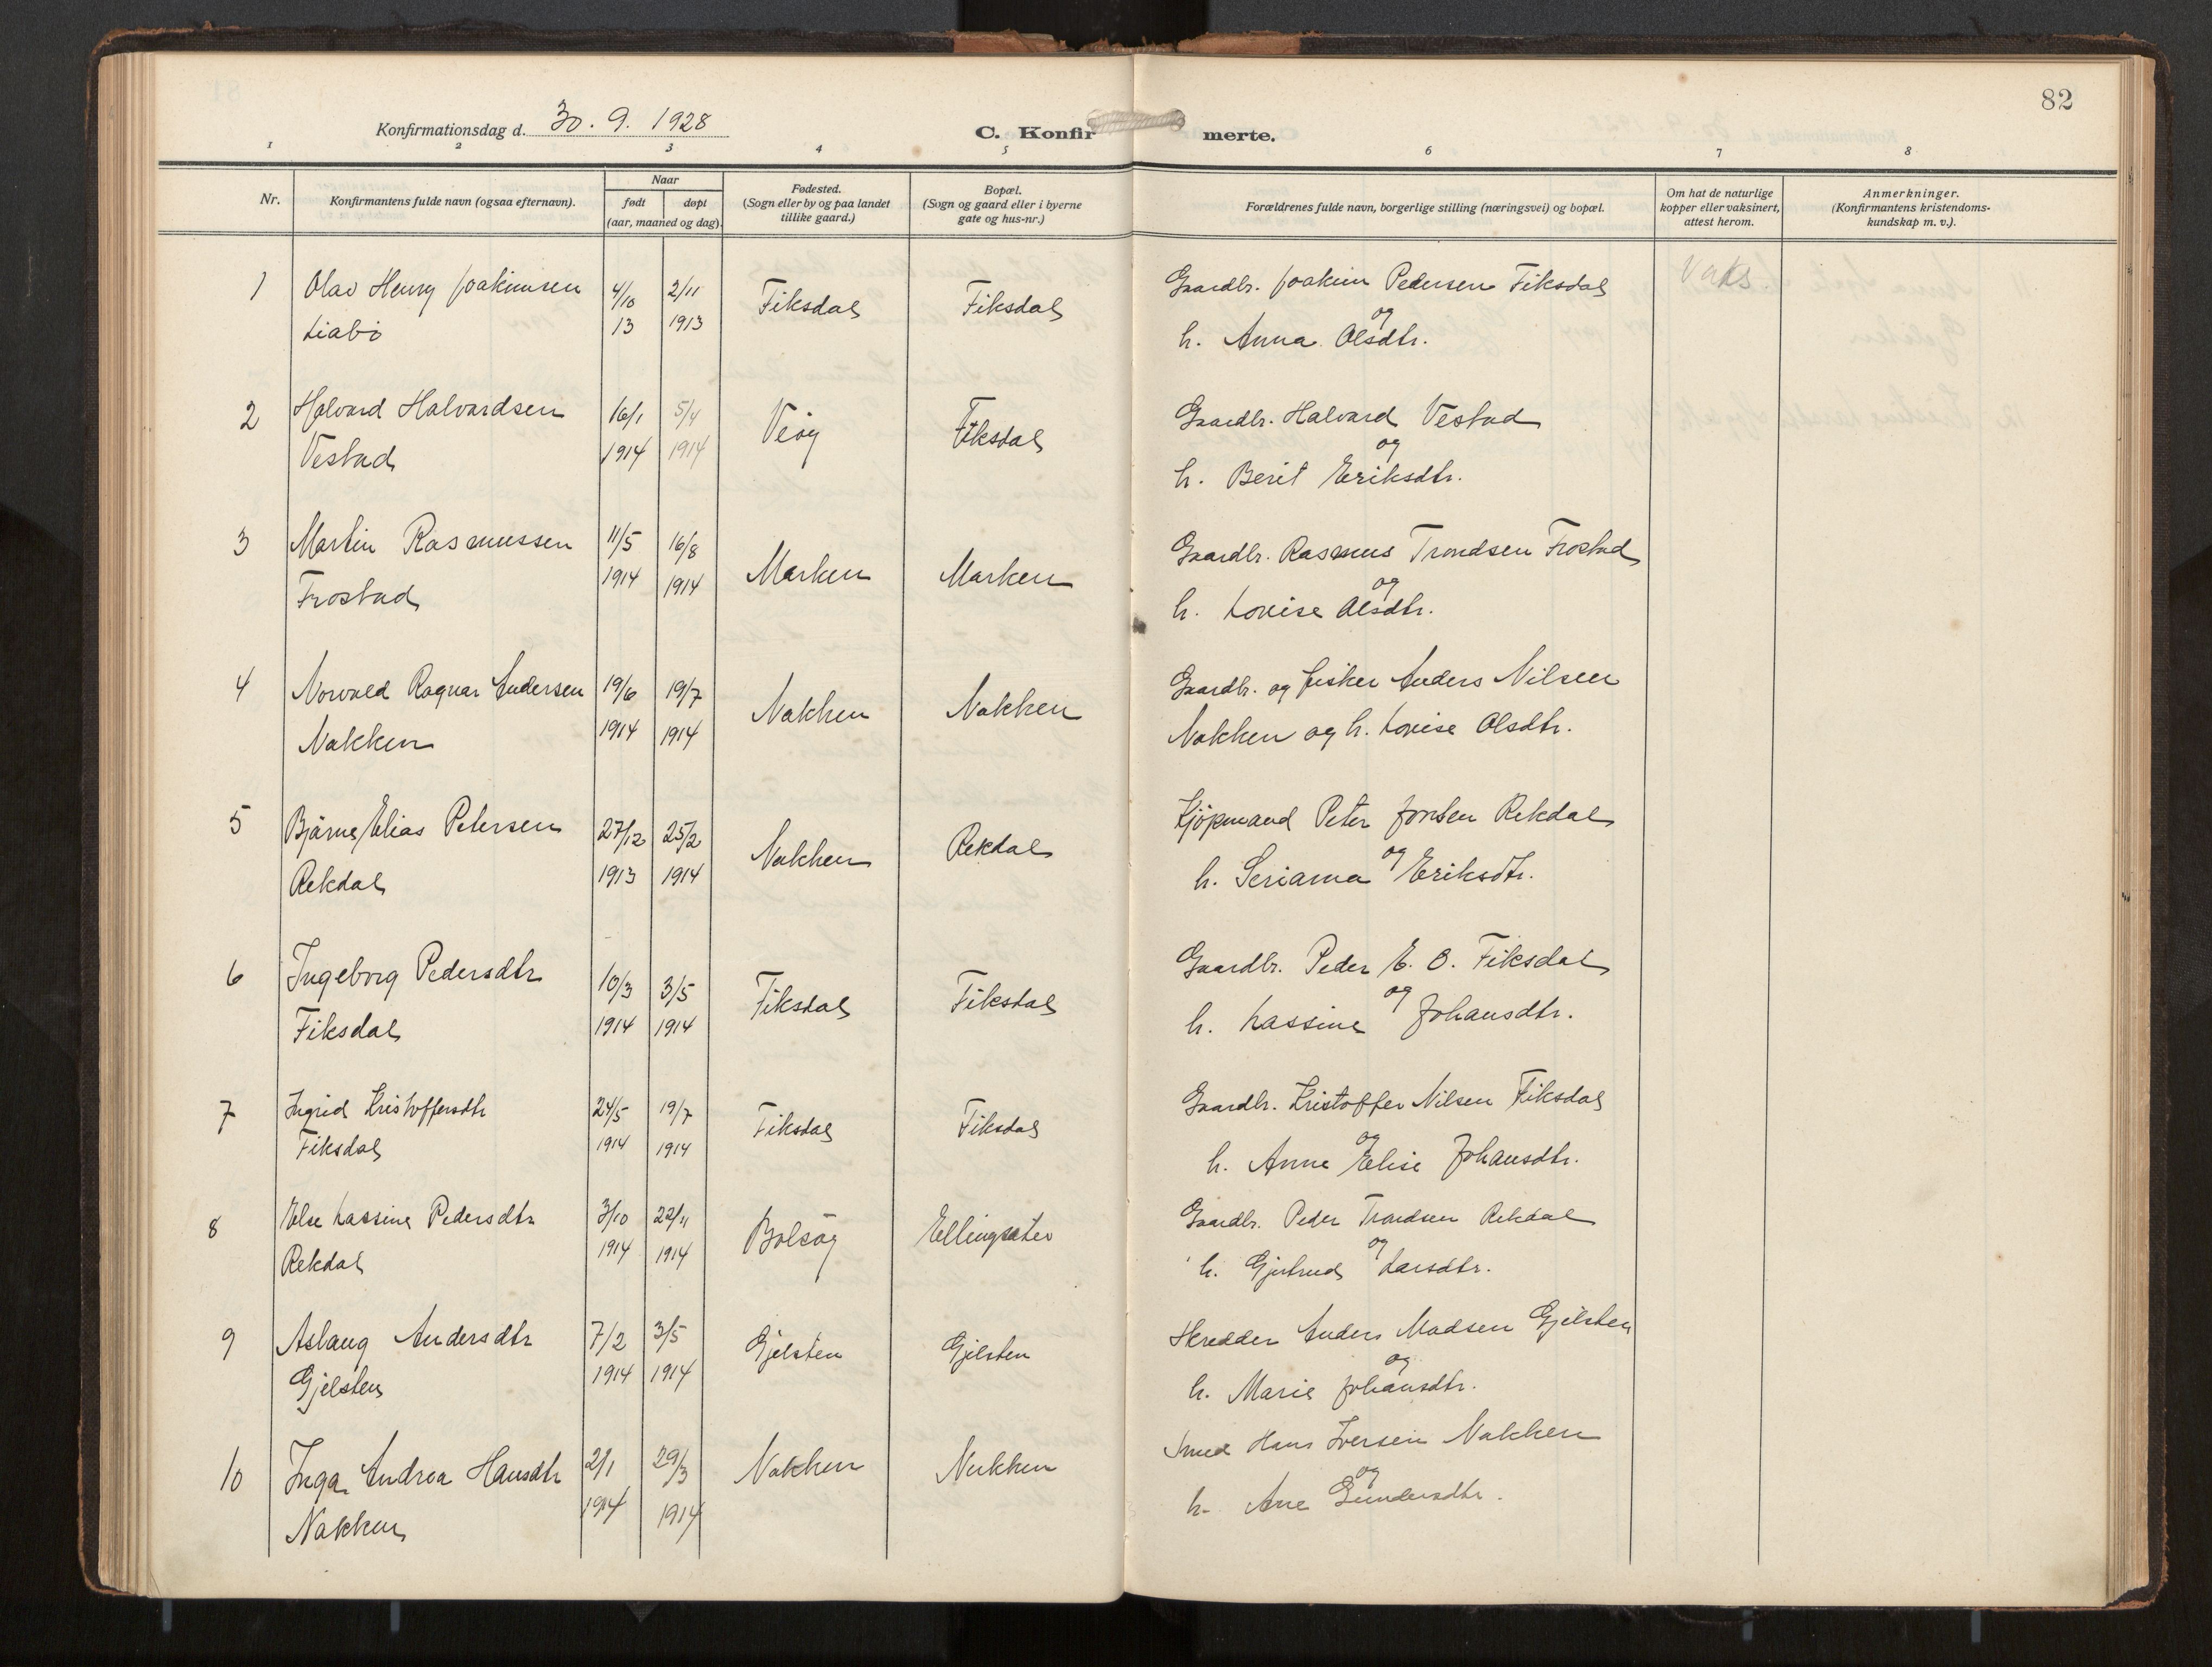 82
Konfirmationsdag d. 30. 9. 1928
C. Konfirmerte.
1 2 3 4 5 6 7 8
Nr.
Konfirmantens fulde navn (ogsaa efternavn).
Naar
født døpt
(aar, maaned og dag).
Fødested.
(Sogn eller by og paa landet
tillike gaard.)
Bopæl.
(Sogn og gaard eller i byerne
gate og hus-nr.)
Forældrenes fulde navn, borgerlige stilling (næringsvei) og bopæl.
Om hat de naturlige
kopper eller vaksinert,
attest herom.
Anmerkninger.
(Konfirmantens kristendoms-
kundskap m. v.).
1 Olav Henry Joakimsen 4/10 2/11 Fiksdal Fiksdal Gaardbr. Joakim Pedersen Fiksdal Vaks.
Liabö 13 1913 og
h. Anna Olsdtr.
2 Halvard Halvardsen 16/1 5/4 Veøy Fiksdal Gaardbr. Halvard Vestad
Vestad 1914 1914 og
h. Berit Eriksdtr.
3 Martin Rasmussen 11/5 16/8 Marken Marken Gaardbr. Rasmus Trondsen Frostad
Frostad 1914 1914 og
h. Lovise Olsdtr.
4 Norvald Ragnar Andersen 19/6 19/7 Nakken Nakken Gaardbr. og fisker Anders Nilsen
Nakken 1914 1914 Nakken og h. Lovise Olsdtr.
5 Bjärne Elias Petersen 27/12 25/2 Nakken Rekdal Kjöpmand Peter Jonsen Rekdal
Rekdal 1913 1914 og
h. Serianna Eriksdtr.
6 Ingeborg Pedersdtr 10/3 3/5 Fiksdal Fiksdal Gaardbr. Peder E. O. Fiksdal
Fiksdal 1914 1914 og
h. Lassine Johansdtr.
7 Ingrid Kristoffersdtr 24/5 19/7 Fiksdal Fiksdal Gaardbr. Kristoffer Nilsen Fiksdal
Fiksdal 1914 1914 og
h. Anne Elise Johansdtr.
8 Else Lassine Pedersdtr 3/10 22/11 Bolsøy Ellingsæter Gaardbr. Peder Trondsen Rekdal
Rekdal 1914 1914 og
h. Gjertrud Larsdtr.
9 Aslaug Andersdtr 7/2 3/5 Gjelsten Gjelsten Skredder Anders Madsen Gjelsten
Gjelsten 1914 1914 og
h. Marie Johansdtr.
10 Inga Andrea Hansdtr 2/1 29/3 Nakken Nakken Smed Hans Iversen Nakken
Nakken 1914 1914 og
h. Ane Gundersdtr.